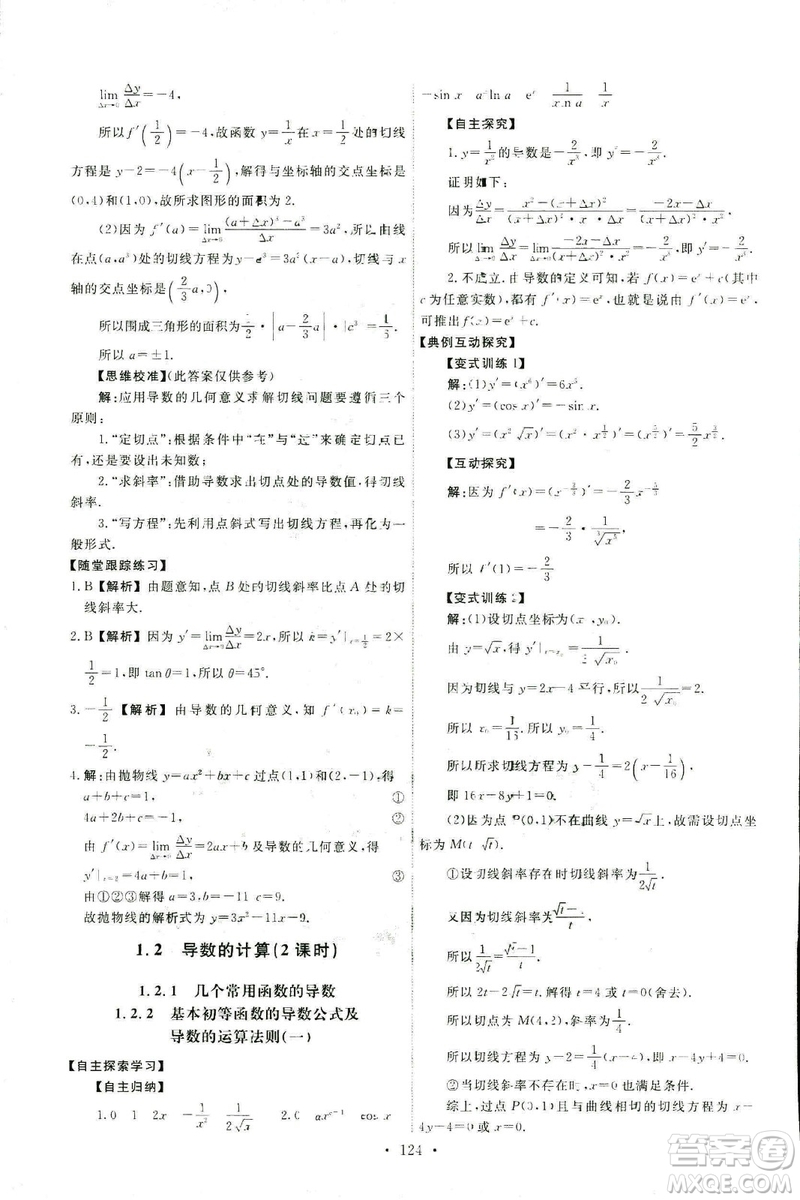 lim Δx→0 Δy/Δx=-4.
所以 f′(1/2)=-4,故函数 y=1/x 在点(1/2,2)处的切线
方程是 y-2=-4(x-1/2),解得与坐标轴的交点坐标是
(0,4)和(1,0),故所求图形的面积为 2.
(2)因为 f′(a)=lim Δx→0 ((a+Δx)³-a³)/Δx=3a²,所以曲线
在点(a,a³)处的切线方程为 y-a³=3a²(x-a),切线与 x
轴的交点坐标是(2/3 a,0).
所以围成三角形的面积为 1/2·|a-2/3 a|·|a³|=1/6.
所以 a=±1.
【思维校准】(此答案仅供参考)
解:应用导数的几何意义求解切线方程时应遵循三个
原则:
1.“定切点”:根据条件中“在”与“过”来确定切点已有
的,还是要设出未知数;
2.“求斜率”:借助导数求出切点处的导数值,得到切线
斜率.
3.“写方程”:先利用点斜式写出切线方程,再化为一
般形式.
【随堂跟踪练习】
1. B 【解析】由题意知,点 B 处的切线斜率比点 A 处的切
线斜率大.
2. B 【解析】因为 y′=lim Δx→0 Δy/Δx=2x,所以 k=y′|x=1/2=2×
1/2=1,即 tan θ=1,得 θ=45°.
3. -1/2 【解析】由导数的几何意义,知 f′(x₀)=k=
-1/2.
4. 解:由抛物线 y=ax²+bx+c 过点(1,1)和(2,-1),得
a+b+c=1, ①
4a+2b+c=-1. ②
由 f′(x)=lim Δx→0 Δy/Δx=2ax+b 及导数的几何意义,得
y′|x=2=4a+b=1. ③
由①②③解得 a=3 b=-11 c=9.
故抛物线的解析式为 y=3x²-11x+9.
1.2 导数的计算(2 课时)
1.2.1 几个常用函数的导数
1.2.2 基本初等函数的导数公式及
导数的运算法则(一)
【自主探索学习】
【自主归纳】
1. 0 1 2x -1/x² 1/(2√x) 2. 0 αx^(α-1) cos x
-sin x aˣln a eˣ 1/(xln a) 1/x
【自主探究】
1. y=1/x 的导数是-1/x²,即 y′=-1/x².
证明如下:
2. 不成立,由导数的定义可知,若 f(x)=eˣ+c(其中
c 为任意实数),都有 f′(x)=eˣ,所以,由 f′(x)=eˣ,不
可推出 f(x)=eˣ+c.
【典例互动探究】
【变式训练 1】
解:(1)y′=(x⁶)′=6x⁵.
(2)y′=(cos x)′=-sin x.
(3)y′=(x²√x)′=(x²·x^(1/2))′=(x^(5/2))′=5/2 x^(3/2).
【互动探究】
所以 f′(1)=-2/3.
【变式训练 2】
解:(1)设切点坐标为(x₀,y₀).
由 y=√x,得 y′|x=x₀=1/(2√x₀).
因为切线与 y=2x-4 平行,所以 1/(2√x₀)=2.
所以 x₀=1/16,所以 y₀=1/4.
所以所求切线方程为 y-1/4=2(x-1/16),
即 16x-8y+1=0.
(2)因为点 P(0,1)不在曲线 y=√x 上,故需设切点坐
标为 M(t,√t).
①设切线斜率存在时切线斜率为 1/(2√t).
又因为切线斜率为 (√t-1)/t,
所以 1/(2√t)=(√t-1)/t.
所以 2t-2√t=t,解得 t=4,t=0(舍去).
所以切点为 M(4,2),斜率为 1/4.
所以切线方程为 y-2=1/4(x-4),即 x-4y+4=0.
②当切线斜率不存在时,x=0 也符合题意.
综上,过点 P(0,1)且与曲线相切的切线方程为 x-
4y+4=0 或 x=0.
· 124 ·
答案圈
MXQE.COM